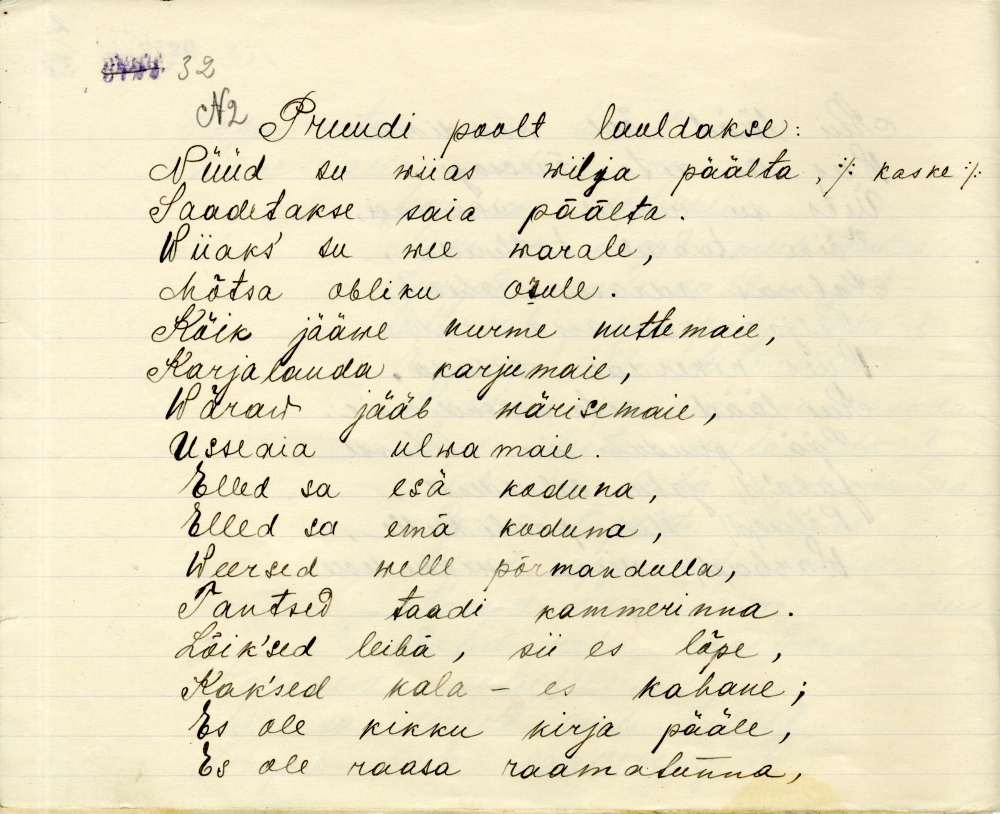 32
N2 Pruudi poolt lauldakse:
Nüüd su wiias wilja päälta, :/: kaske :/:
Saadetakse saia päälta.
Wiiaks' su wee warale,
Mõtsa obliku osule.
Kõik jääwe nurme nuttemaie,
Karjalauda karjumaie,
Wäraw jääb wärisemaie,
Usseaia ulwamaie.
Elled sa esä koduna,
Elled sa emä koduna,
Weersed welle põrmandulla,
Tantsed taadi kammerinna.
Lõik'sed leibä, sii es lõpe,
Kak'sed kala – es kahane;
Es ole kikku kirja pääle,
Es ole raasa raamatunna,